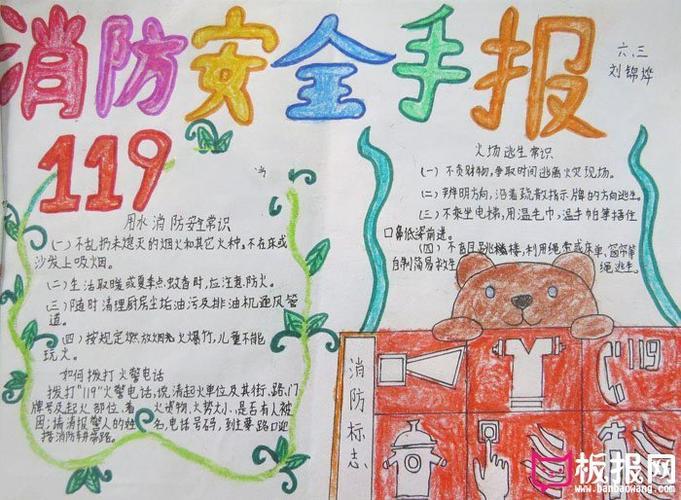 消防安全手报
六、三
刘锦烨
119
用水消防安全常识
(一)不乱扔未熄灭的烟火和其它火种,不在床或
沙发上吸烟。
(二)生活取暖或夏季点蚊香时,应注意防火。
(三)随时清理厨房尘垢油污及排油机通风管
道。
(四)按规定燃放烟火爆竹,儿童不能
玩火。
如何拨打火警电话
拨打"119"火警电话,说清起火单位及其街、路、门
牌号及起火部位、着 火货物,火势大小,是否有人被
困;请消报警人的姓 名,电话号码,到主要路口迎
接消防车带路。
火场逃生常识
(一)不贪财物,争取时间逃离火灾现场。
(二)辨明方向,沿着疏散指示牌的方向逃生。
(三)不乘坐电梯,用湿毛巾,湿手帕等捂住
口鼻低姿前进。
(四)不盲目跳楼,利用绳索或床单、窗帘等
自制简易救生 绳逃生。
消防标志
119
板报网
www.banbaowang.com